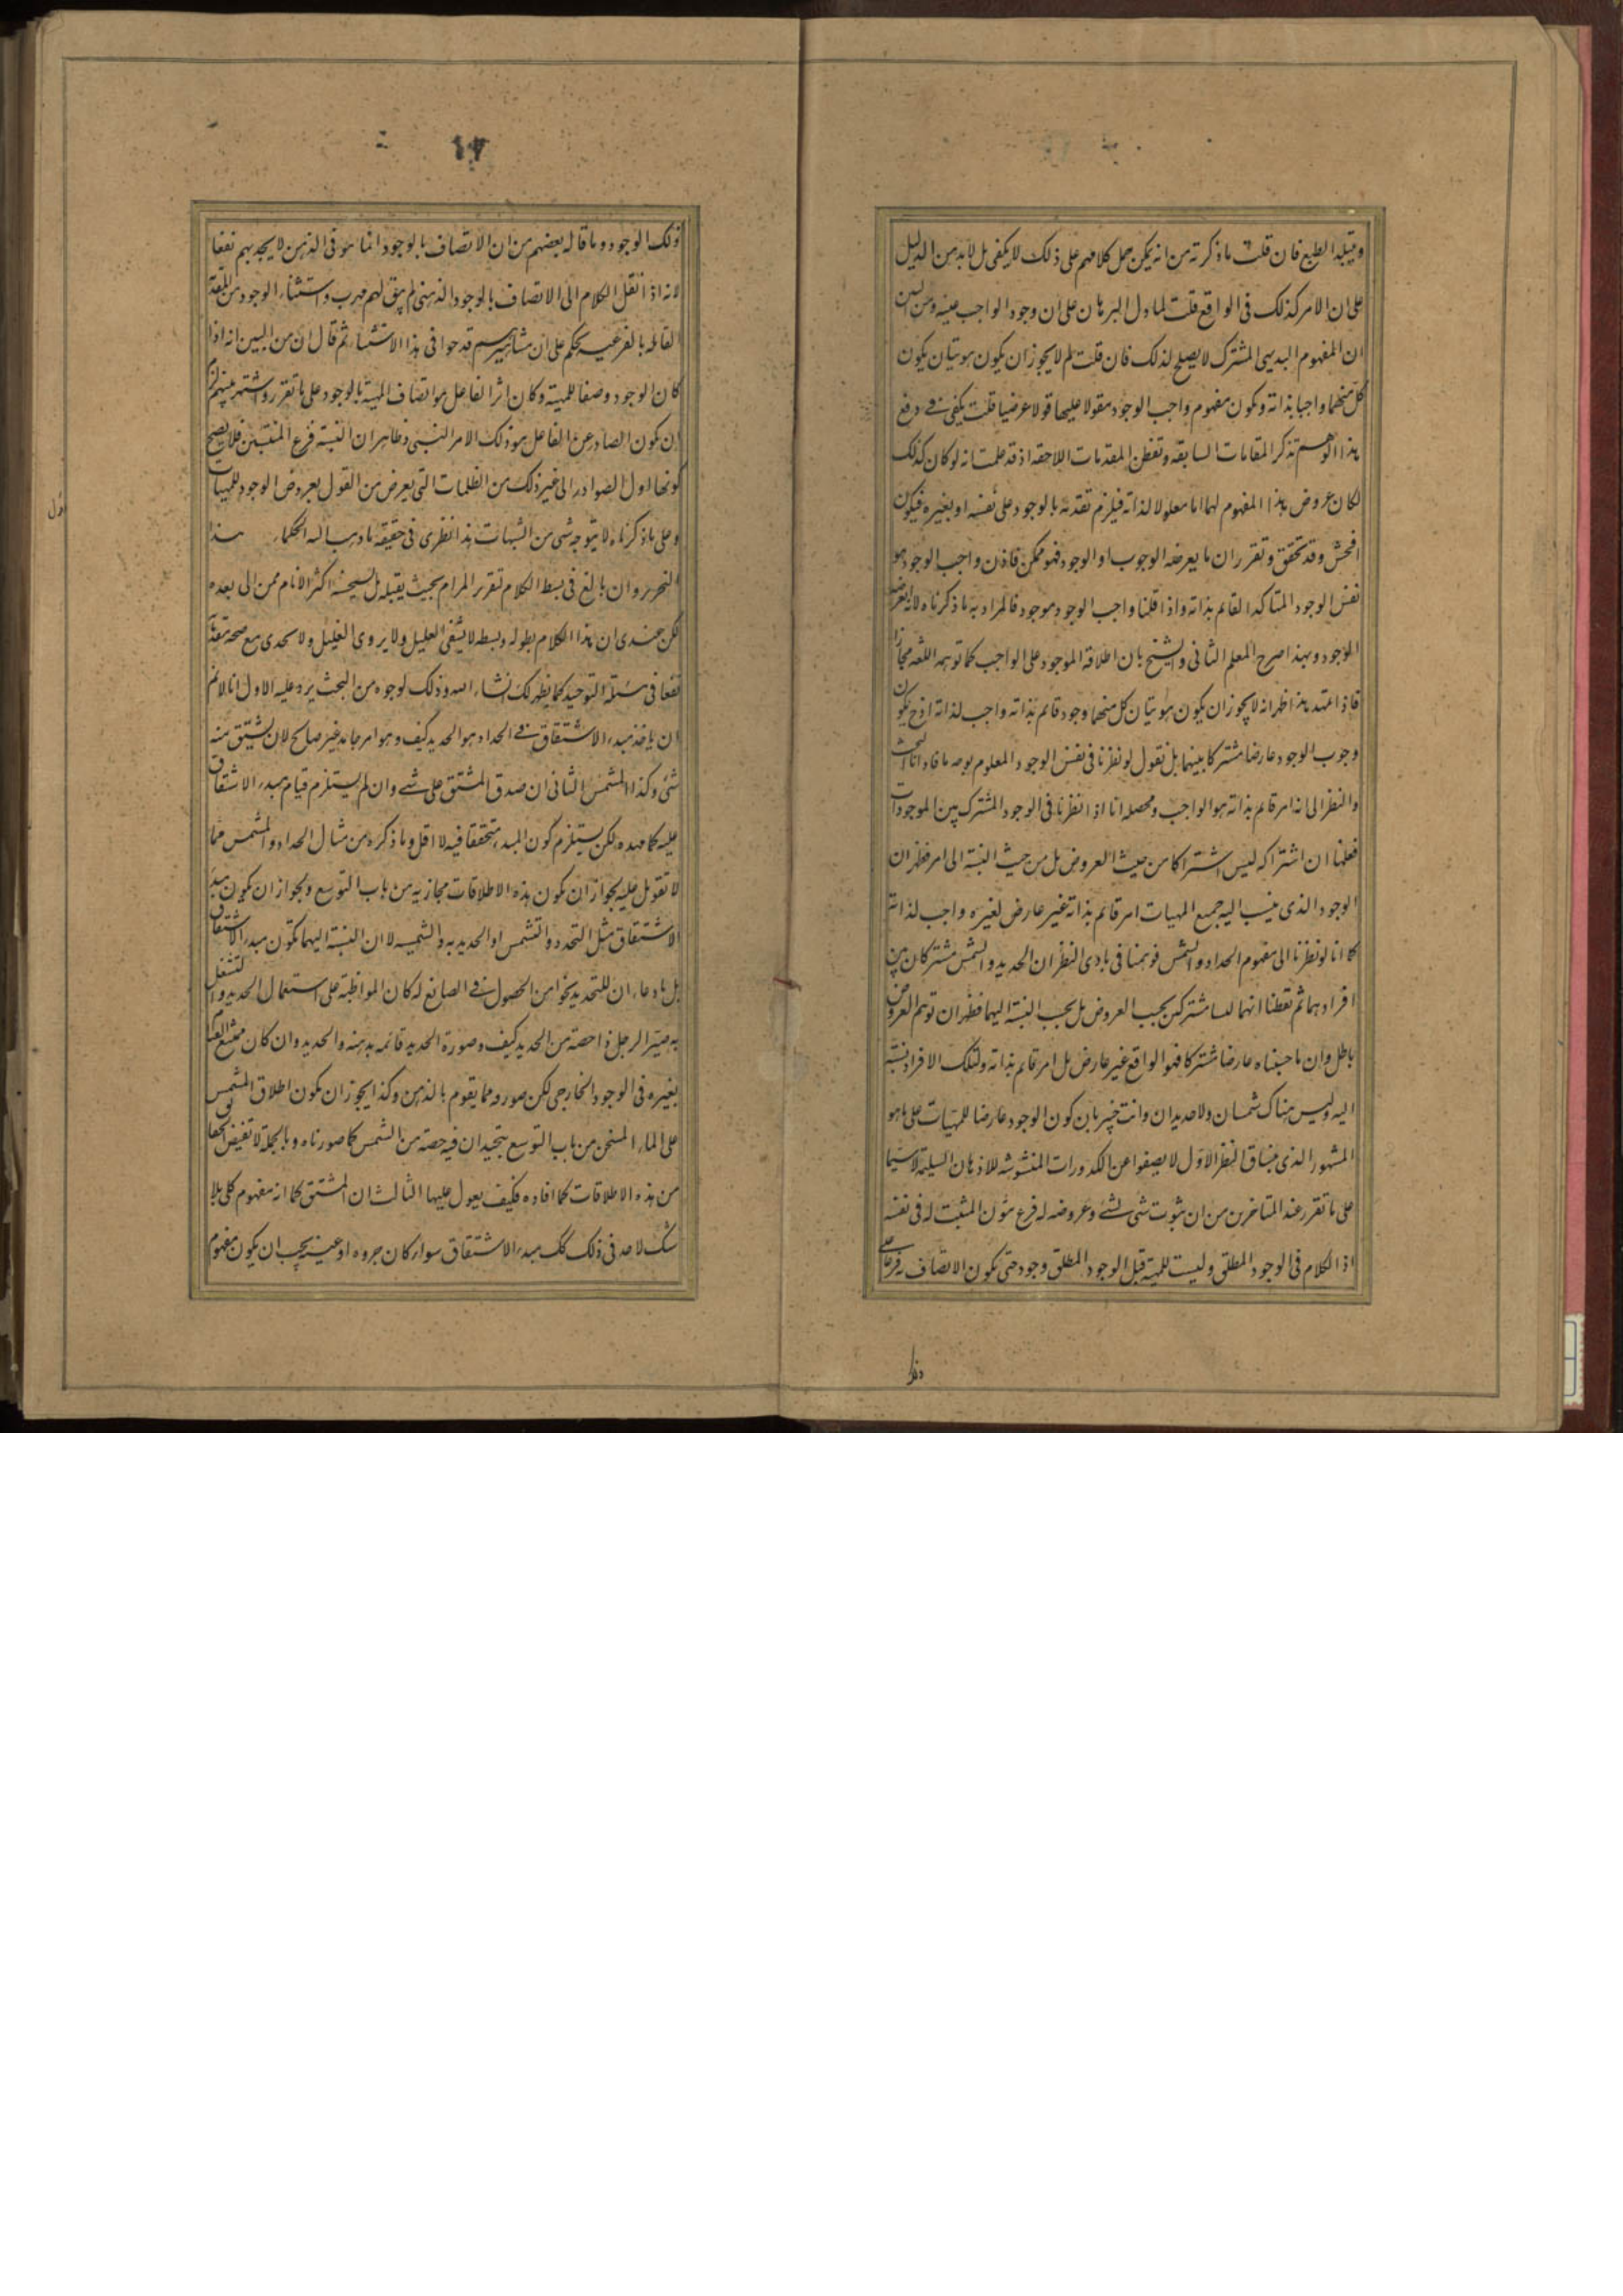 ويقبله الطبع فان قلت ما ذكرته من انه يمكن حمل كلامهم على ذلك لا يكفى بل لابد من الدليل
على ان الامر كذلك فى الواقع قلت لما دل البرهان على ان وجود الواجب عينه ومن البين
ان المفهوم البديهى المشترك لا يصلح لذلك فان قلت لم لا يجوز ان يكون هويتان يكون
كل منهما واجبا بذاته ويكون مفهوم واجب الوجود مقولا عليها قولا عرضيا قلت يكفى فى دفع
هذا الوهم تذكر المقامات السابقه وتفطن المقدمات اللاحقه اذ قد علمت انه لو كان كذلك
لكان عروض هذا المفهوم لهما اما معلولا لذاته فيلزم تقدمه بالوجود على نفسه او بغيره فيكون
افحش وقد تحقق وتقرر ان ما يعرضه الوجوب او الوجود فهو ممكن فاذن واجب الوجود هو
نفس الوجود المتاكد القايم بذاته واذا قلنا واجب الوجود موجود فالمراد به ما ذكرناه لا انه يعرضه
الوجود وبهذا صرح المعلم الثانى والشيخ بان اطلاقه الموجود على الواجب كما توهمه اللغه مجازا
فاذا تمهد هذا ظهر انه لا يجوز ان يكون هويتان كل منهما وجود قائم بذاته واجب لذاته اذ ح يكون
وجوب الوجود عارضا مشتركا بينهما بل نقول لو نظرنا فى نفس الوجود المعلوم بوجه ما قادنا البحث
والنظر الى انه امر قائم بذاته هو الواجب ومحصله انا اذا نظرنا فى الوجود المشترك بين الموجودات
فعلمنا ان اشتراكه ليس اشتراكا من حيث العروض بل من حيث النسبة الى امر فظهر ان
الوجود الذى ينسب اليه جميع المهيات امر قائم بذاته غير عارض لغيره واجب لذاته
كما انا لو نظرنا الى مفهوم الحداد والمشمس فوهمنا فى بادى النظر ان الحديد والشمس مشتركان بين
افرادهما ثم تفطنا انهما ليسا مشتركين بحسب العروض بل بحسب النسبة اليهما فظهر ان توهم العروض
باطل وان ما حسبناه عارضا مشتركا فهو الواقع غير عارض بل امر قائم بذاته ولتلك الافراد نسبة
اليه وليس هناك شمسان ولا حديدان وانت خبير بان كون الوجود عارضا للمهيات على ما هو
المشهور الذى يساق النظر الاول لا يصفوا عن الكدورات المشوشه للاذهان السليمة لا سيما
على ما تقرر عند المتاخرين من ان ثبوت شى لشئ وعروضه له فرع ثبوت المثبت له فى نفسه
اذ الكلام فى الوجود المطلق وليست للمهية قبل الوجود المطلق وجود حتى يكون الاتصاف به فرعا على
ذلك الوجود وما قاله بعضهم من ان الاتصاف بالوجود انما هو فى الذهن لا يجديهم نفعا
لانه اذا نقل الكلام الى الاتصاف بالوجود الذهنى لم يبق لهم مهرب واستثناء الوجود من المقدمة
القائله بالفرعيه تحكم على ان مشاهيرهم قد حوا فى هذا الاستثناء ثم قال ان من البين انه اذا
كان الوجود وصفا للمهية وكان اثر الفاعل هو اتصاف المهية بالوجود على ما تقرر واشتهر بينهم لزم
ان يكون الصادر عن الفاعل هو ذلك الامر النسبى وظاهر ان النسبة فرع المنتسبين فلا يصح
كونها اول الصوادر الى غير ذلك من الظلمات التى يعرض من القول بعروض الوجود للمهيات
وعلى ما ذكرناه لا يتوجه شى من الشبهات هذا نظرى فى حقيقة ما ذهب اليه الحكماء هذا
النحرير وان بالغ فى بسط الكلام تقرير المرام بحيث يقبله بل يستحسنه اكثر الانام ممن اتى بعده
لكن عندى ان هذا الكلام بطوله وبسطه لا يشفى العليل ولا يروى الغليل ولا يجدى مع صحة مقدماته
نفعا فى مسئلة التوحيد كما يظهر لك انشاء الله وذلك لوجوه من البحث يرد عليه الاول انا لا نم
ان ما خذ مبدء الاشتقاق فى الحداد هو الحديد كيف وهو امر جامد غير صالح لان يشتق منه
شئ وكذا المشمس الثانى ان صدق المشتق على شئ وان لم يستلزم قيام مبدء الاشتقاق
عليه كما مهده لكن يستلزم كون المبدء متحققا فيه لا اقل وما ذكره من مثال الحداد والمشمس مما
لا تعويل عليه لجواز ان يكون هذه الاطلاقات مجازيه من باب التوسع ولجواز ان يكون مبدء
الاشتقاق مثل التحدد والتشمس او الحديديه والشمسيه لا ان النسبة اليهما تكون مبدء الاشتقاق
بل بادعاء ان للتحديد نحوا من الحصول فى الصانع له كان المواظبة على استعمال الحديد والتشغل
به صيّر الرجل ذا حصة من الحديد كيف وصورة الحديد قائمه بذهنه والحديد وان كان ممتنع القيام
بغيره فى الوجود الخارجى لكن صورته مما يقوم بالذهن وكذا يجوز ان يكون اطلاق المشمس
على الماء المسخن من باب التوسع بتخييل ان فيه حصة من الشمس كما صورناه وبالجملة لا تقتنص الحقائق
من هذه الاطلاقات كما افاده فكيف يعول عليها الثالث ان المشتق كما انه مفهوم كلى بلا
شك لاحد فى ذلك كك مبدء الاشتقاق سواء كان جزوه او عينه يجب ان يكون مفهوما